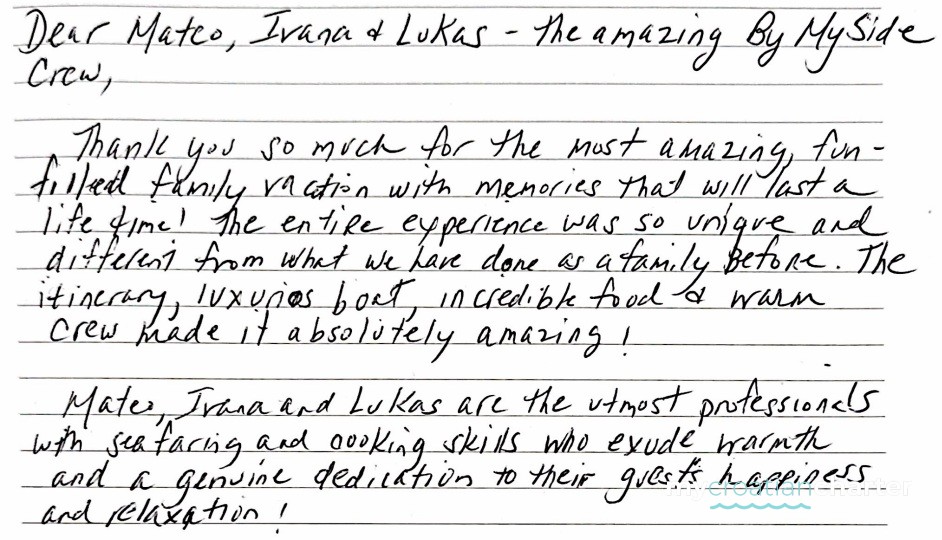 Dear Mateo, Ivana & Lukas - the amazing By My Side
Crew,
Thank you so much for the most amazing, fun-
filled family vaction with memories that will last a
life time! The entire experience was so unique and
different from what we have done as a family before. The
itinerary, luxurios boat, incredible food & warm
crew made it absolutely amazing!
Mateo, Ivana and Lukas are the utmost professionals
with seafaring and cooking skills who exude warmth
and a genuine dedication to their guests happiness
my croatian charter
and relaxation!